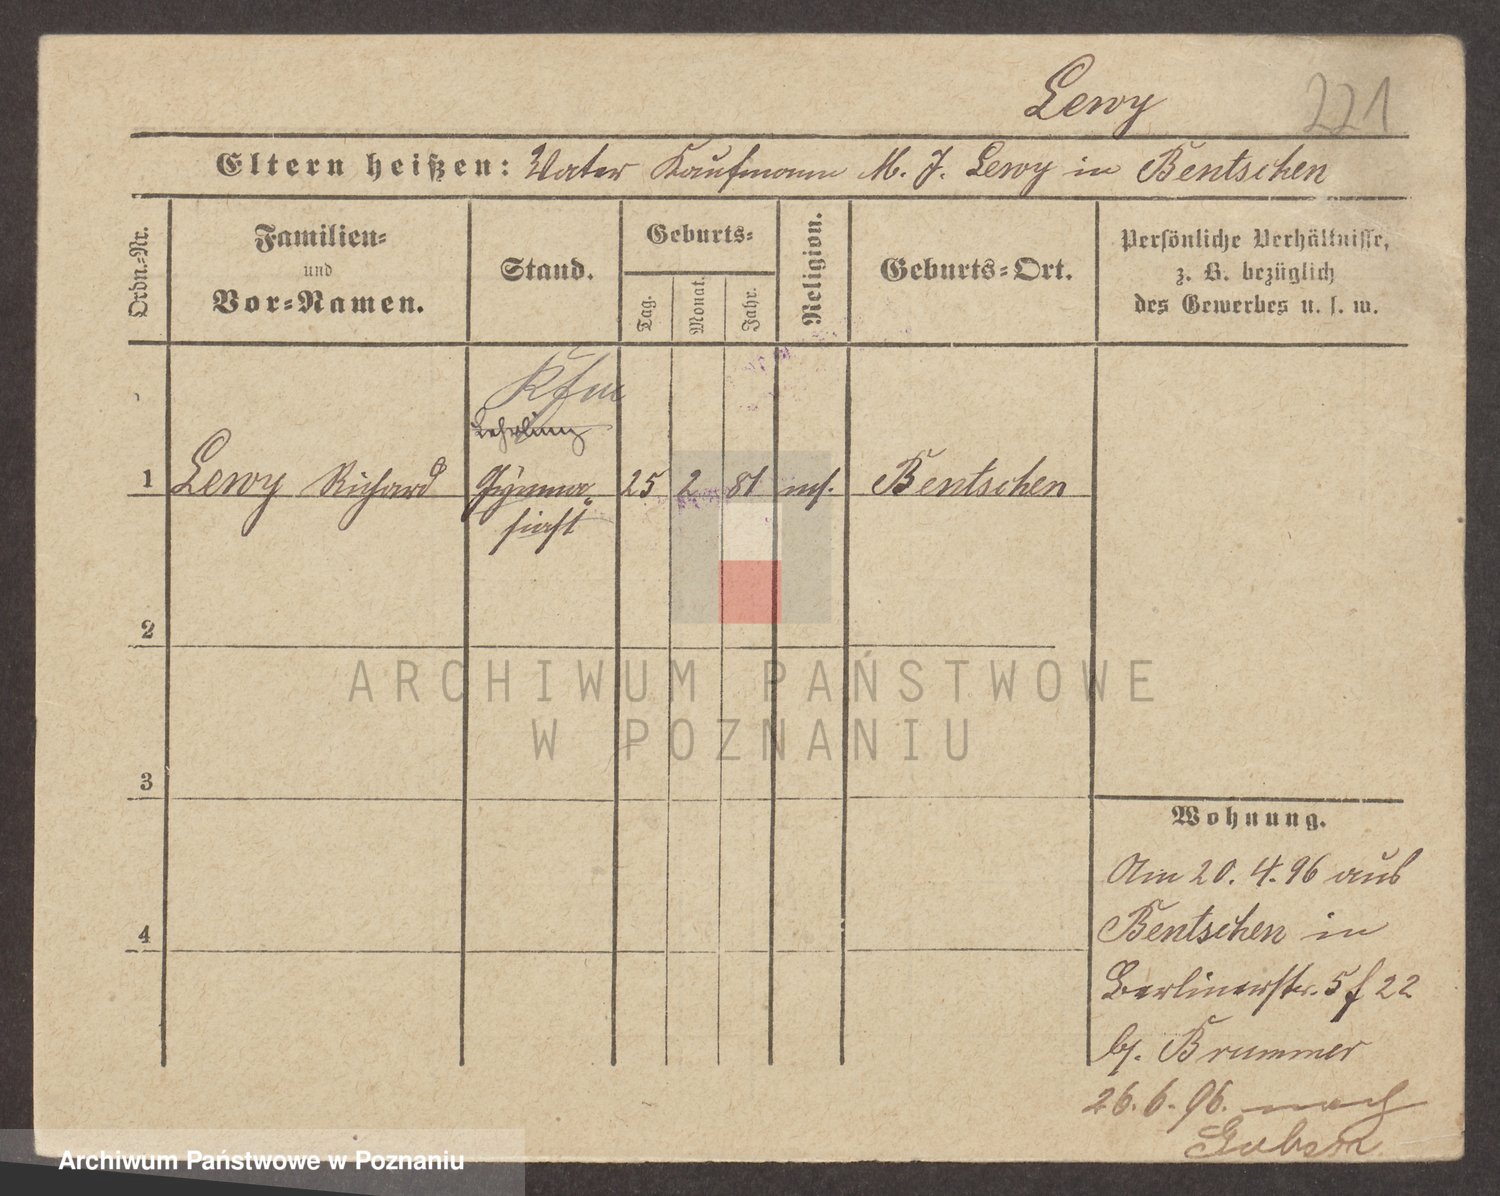 Lewy 221
Eltern heißen: Vater Kaufmann M. J. Lewy in Bentschen
Ordn.-Nr.
Familien-
und
Vor-Namen.
Stand.
Geburts-
Tag.
Monat.
Jahr.
Religion.
Geburts-Ort.
Persönliche Verhältnisse,
z. B. bezüglich
des Gewerbes u. s. w.
Kfm
Lehrling
1 Lewy Richard Gymna- 25 2 81 mos. Bentschen
siast
2
3
4
Wohnung.
Am 20. 4. 96 aus
Bentschen in
Berlinerstr. 5 f 22
bei Brummer
26. 6. 96. nach
ARCHIWUM PAŃSTWOWE
W POZNANIU
Archiwum Państwowe w Poznaniu